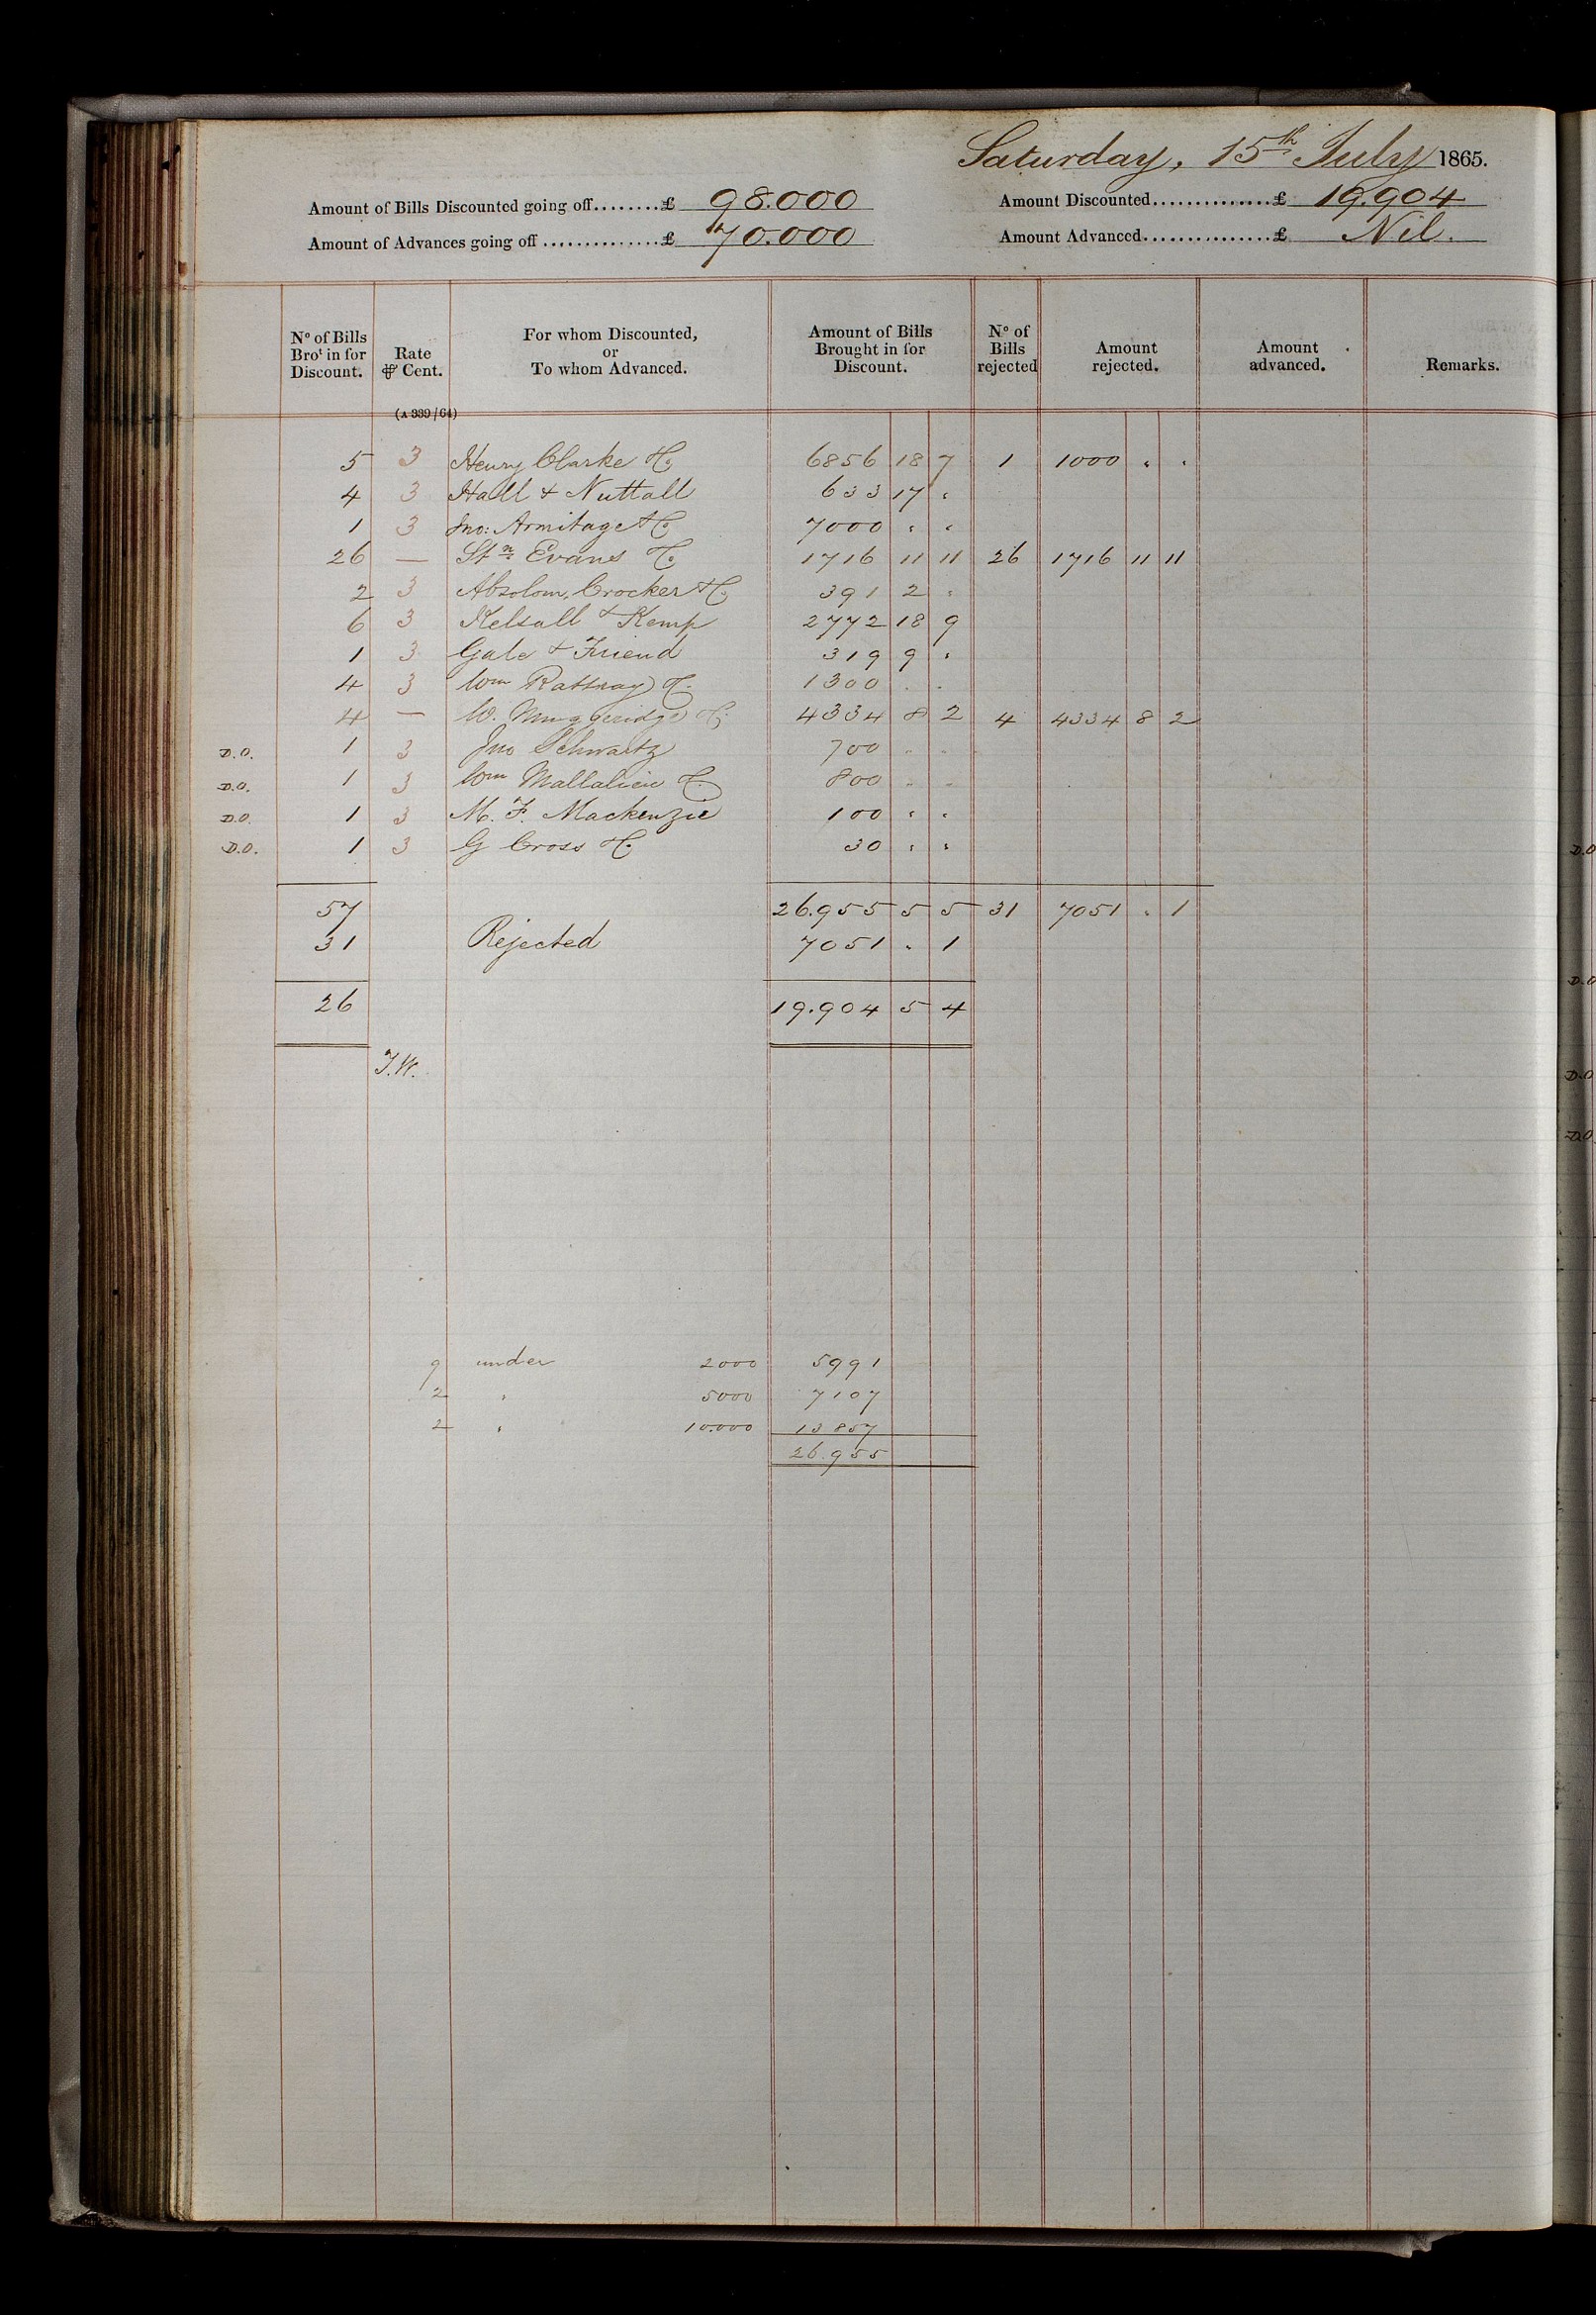 Saturday, 15th July 1865.
Amount of Bills Discounted going off........£ 98.000 Amount Discounted...............£ 19.904
Amount of Advances going off...............£ 70.000 Amount Advanced................£ Nil.
No of Bills Brot in for Discount. Rate ⅌ Cent. For whom Discounted, or To whom Advanced. Amount of Bills Brought in for Discount. No of Bills rejected Amount rejected. Amount advanced. Remarks.
(A 339/64)
5 3 Henry Clarke & Co 6856 18 7 1 1000 " "
4 3 Hall & Nuttall 633 17 "
1 3 Jno: Armitage & Co 7000 " "
26 — Stn Evans & Co 1716 11 11 26 1716 11 11
2 3 Absolom, Crocker & Co 391 2 "
6 3 Kelsall & Kemp 2772 18 9
1 3 Gale & Friend 319 9 "
4 3 Wm Rattray & Co 1300 " "
4 — W. Muggeridge & Co 4334 8 2 4 4334 8 2
D.O. 1 3 Jno Schwartz 700 " "
D.O. 1 3 Wm Mallalieu & Co 800 " "
D.O. 1 3 M. F. Mackenzie 100 " "
D.O. 1 3 G Cross & Co 30 " "
57 26.955 5 5 31 7051 " 1
31 Rejected 7051 " 1
26 19.904 5 4
J.W.
9 under 2000 5991
2 " 5000 7107
2 " 10.000 13857
26.955
D.O
D.O
D.O
D.O